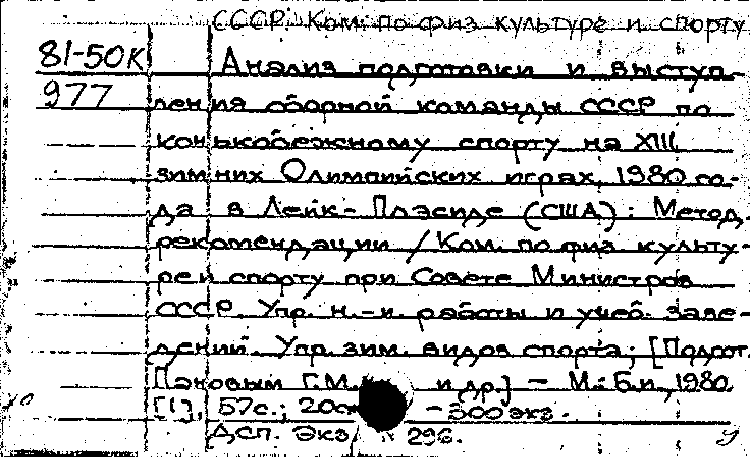 СССР. Ком. по физ. культуре и спорту
81-50К
977
Анализ подготовки и выступ-
ления сборной команды СССР по
конькобежному спорту на XIII
зимних Олимпийских играх 1980 го-
да в Лейк-Плэсиде (США): Метод.
рекомендации / Ком. по физ. культу-
ре и спорту при Совете Министров
СССР. Упр. н.-и. работы и учеб. заве-
дений. Упр. зим. видов спорта; [Подгот.
Пановым Г.М. и др.] - М.: Б.и., 1980.
[1], 57с.; 20см - 300 экз.
ДСП. Экз. 296.